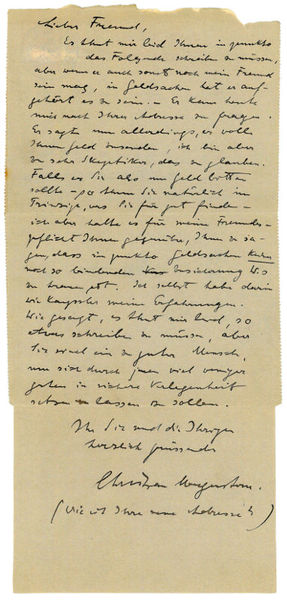 Lieber Freund,
Es thut mir leid Ihnen in puncto
das Folgende schreiben zu müssen,
aber wenn er auch sonst noch mein Freund
sein mag, in Geldsachen hat er auf-
gehört es zu sein. – Er kam heute
mich nach Ihrer Adresse zu fragen.
Er sagte nun allerdings, er wolle
Ihnen Geld zusenden, ich bin aber
zu sehr Skeptiker, das zu glauben.
Falls er Sie also um Geld bitten
sollte – so thun Sie natürlich im
was Sie für gut finden –
ich aber halte es für meine Freundes-
pflicht Ihnen gegenüber, Ihnen zu sa-
gen, dass in puncto Geldsachen keiner
noch so bindenden
zu trauen ist. Ich selbst habe darin
meine Erfahrungen.
Wie gesagt, es thut mir leid, so
etwas schreiben zu müssen, aber
Sie sind ein zu guter Mensch,
um sich durch viel weniger
guten in Verlegenheit
setzen lassen zu sollen.
Ihr Sie und die Ihrigen
herzlich grüssender
Christian Morgenstern.
(Wie ist Ihre neue Adresse?)